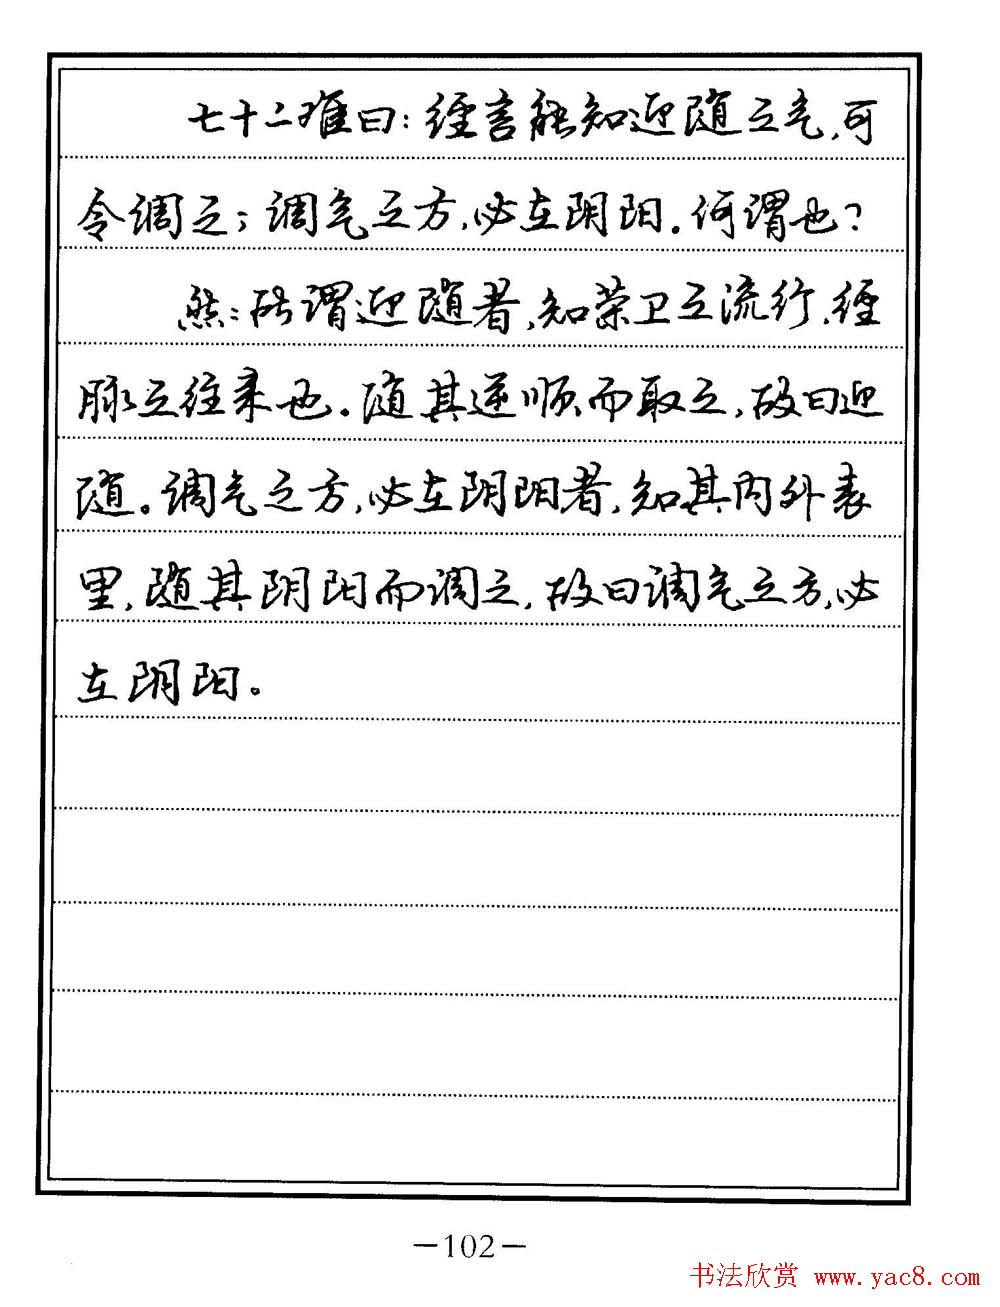 七十二难曰：经言能知迎随之气，可
令调之；调气之方，必在阴阳。何谓也？
然：所谓迎随者，知荣卫之流行，经
脉之往来也。随其逆顺而取之，故曰迎
随。调气之方，必在阴阳者，知其内外表
里，随其阴阳而调之，故曰调气之方，必
在阴阳。
—102—
书法欣赏 www.yac8.com